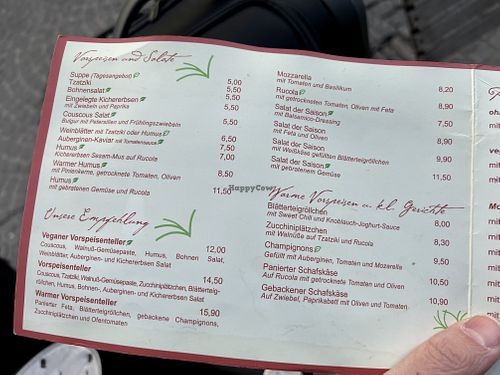 Vorspeisen und Salate
Suppe (Tagesangebot)
Tzatziki 5,00
Bohnensalat 5,50
Eingelegte Kichererbsen 5,50
mit Zwiebeln und Paprika
Couscous Salat
Bulgur mit Petersilien und Frühlingszwiebeln 5,50
Weinblätter mit Tzatziki oder Humus
Auberginen-Kaviar mit Tomatensauce 6,50
Humus 7,50
Kichererbsen Sesam-Mus auf Rucola 7,00
Warmer Humus
mit Pinienkerne, getrocknete Tomaten, Oliven 8,50
Humus
mit gebratenen Gemüse und Rucola 11,50
Unsere Empfehlung
Veganer Vorspeisenteller 12,00
Couscous, Walnuß-Gemüsepaste, Humus, Bohnen Salat,
Weinblätter, Auberginen- und Kichererbsen Salat
Vorspeisenteller 14,50
Couscous, Tzatziki, Walnuß-Gemüsepaste, Zucchiniplätzchen, Blätterteig-
röllchen, Humus, Bohnen-, Auberginen- und Kichererbsen Salat
Warmer Vorspeisenteller 15,90
Panierter Feta, Blätterteigröllchen, gebackene Champignons,
Zucchiniplätzchen und Ofentomaten
Mozzarella
mit Tomaten und Basilikum 8,20
Rucola
mit getrockneten Tomaten, Oliven mit Feta 8,90
Salat der Saison
mit Balsamico-Dressing 7,50
Salat der Saison
mit Feta und Oliven 8,90
Salat der Saison
mit Weißkäse gefüllten Blätterteigröllchen 9,90
Salat der Saison
mit gebratenem Gemüse 11,50
Warme Vorspeisen u. kl. Gerichte
Blätterteigröllchen
mit Sweet Chili und Knoblauch-Joghurt-Sauce 8,00
Zucchiniplätzchen
mit Walnüße auf Tzatziki und Rucola 8,30
Champignons
Gefüllt mit Auberginen, Tomaten und Mozarella 9,50
Panierter Schafskäse
Auf Rucola mit getrockneten Tomaten und Oliven 10,50
Gebackener Schafskäse
Auf Zwiebel, Paprikabett mit Oliven und Tomaten 10,90
HappyCow